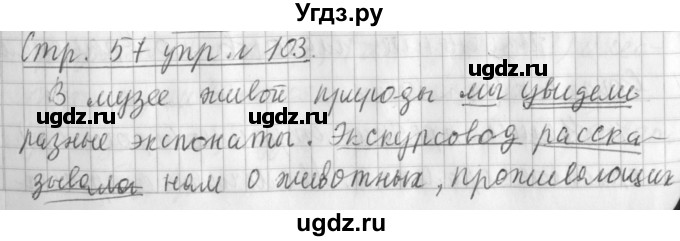 Угдз.ру
Стр. 57 упр. № 103.
ugdz.ru ugdz.ru
В музее живой природы мы увидели
ugdz.ru ugdz.ru
разные экспонаты. Экскурсовод расска-
ugdz.ru
зывала нам о животных, проживающих
ugdz.ru